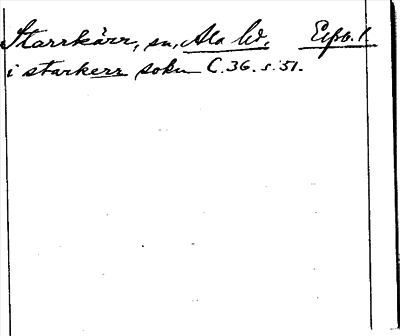 Starrkärr, sn, Ale hd. Eipo. 1
i starkerr sokn C.36. s. 51.